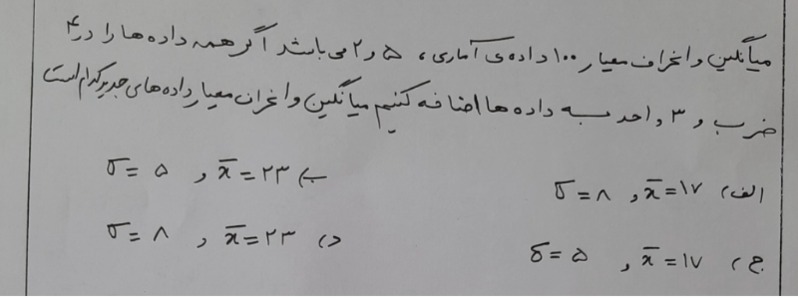 میانگین و انحراف معیار ۱۰۰ داده‌ی آماری، ۵ و ۲ می باشد اگر همه داده ها را در ۴
ضرب و ۳ واحد به داده ها اضافه کنیم میانگین و انحراف معیار داده های جدید کدام است
الف) x̄ = ۱۷ و σ = ۸
ب) x̄ = ۲۳ و σ = ۵
ج) x̄ = ۱۷ و σ = ۵
د) x̄ = ۲۳ و σ = ۸